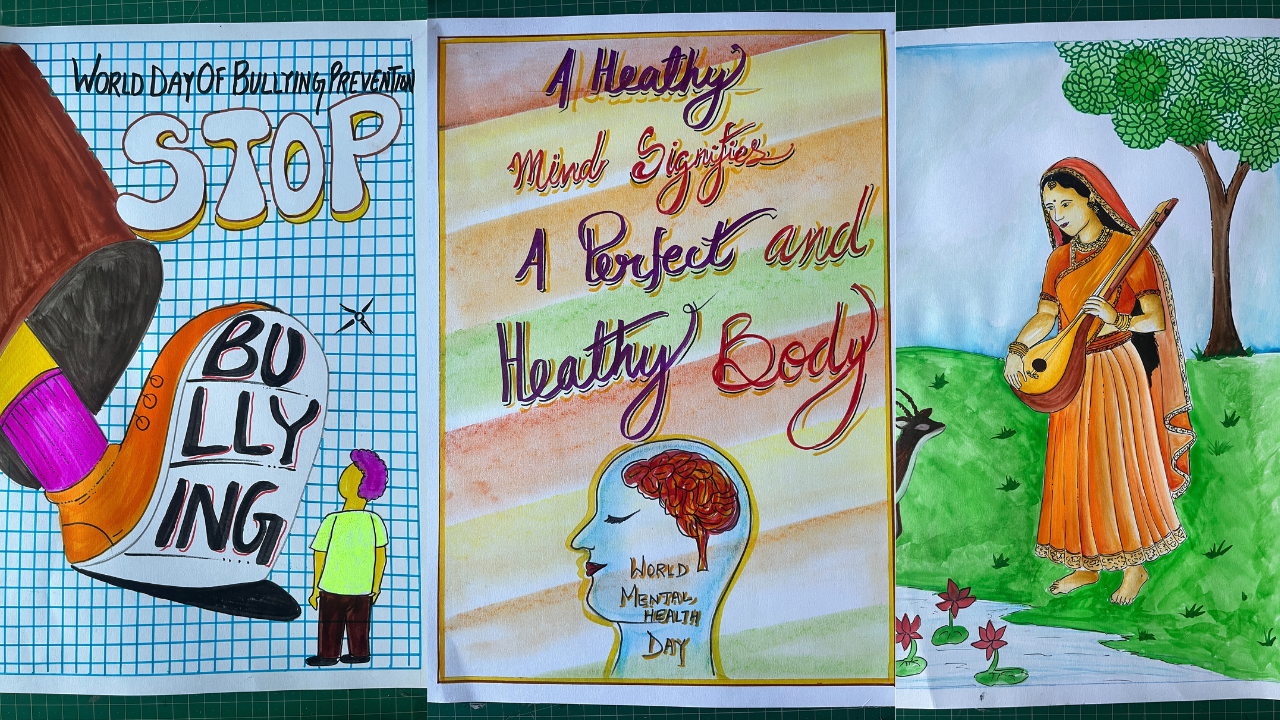 WORLD DAY OF BULLYING PREVENTION
STOP
BU
LLY
ING
A Heathy
Mind Signifies
A Perfect and
Heathy Body
WORLD
MENTAL
HEALTH
DAY